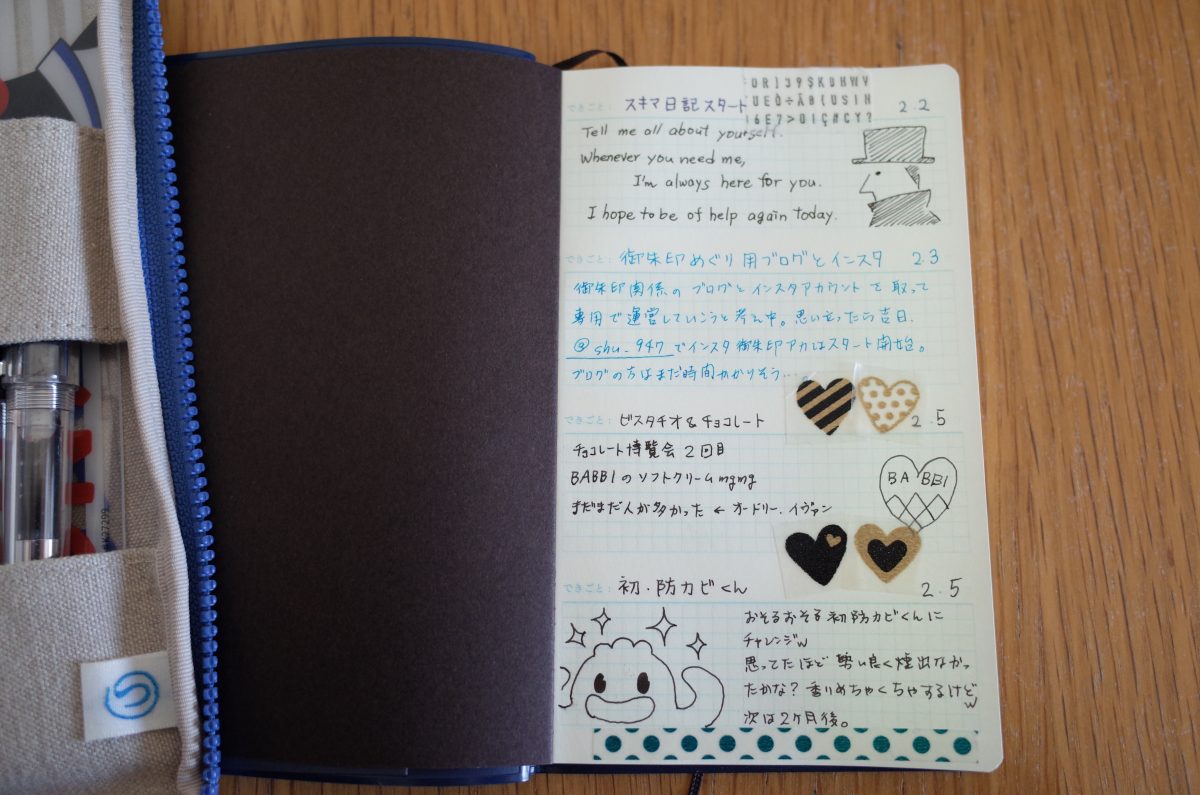 DR]39$KDHWV
UEÒ÷ÃB(USIH
6E7>OIÇ#CY?
できごと： スキマ日記スタート 2.2
Tell me all about yourself.
Whenever you need me,
I'm always here for you.
I hope to be of help again today.
できごと： 御朱印めぐり用ブログとインスタ 2.3
御朱印関係のブログとインスタアカウントを取って
専用で運営していこうと考え中。思い立ったら吉日.
@shu.947でインスタ御朱印アカはスタート開始。
ブログの方はまだ時間かかりそう…。
できごと： ピスタチオ&チョコレート 2.5
チョコレート博覧会2回目
BABBIのソフトクリームmgmg
まだまだ人が多かった ← オードリー、イヴァン
BABBI
できごと： 初・防カビくん 2.5
おそるおそる初防カビくんに
チャレンジw
思ってたほど勢い良く煙出なかっ
たかな？香りめちゃくちゃするけどw
次は2ヶ月後。